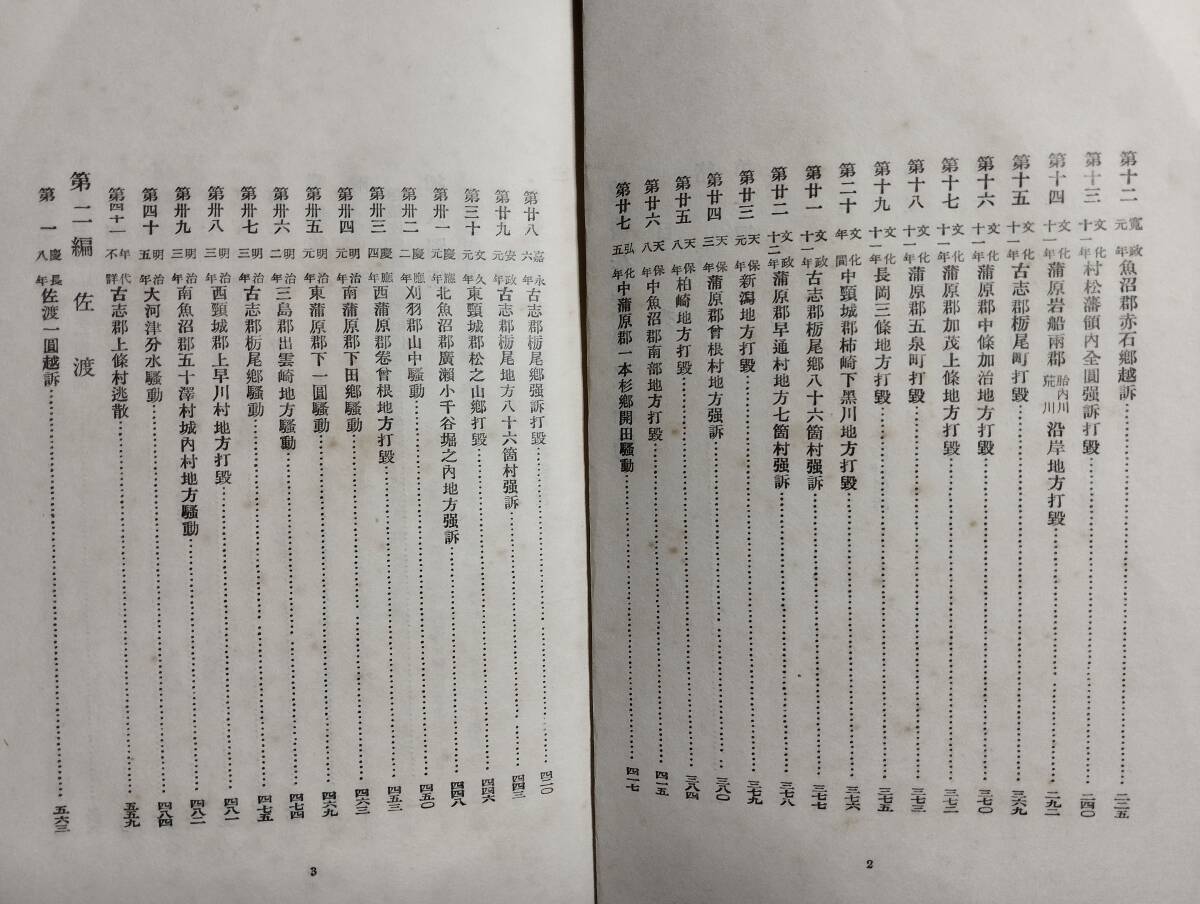 第十二 寛政元年 魚沼郡赤石鄉越訴……二二五
第十三 文化十一年 村松藩領內全圓强訴……二四〇
第十四 文化十一年 蒲原岩船兩郡 胎內川 荒川 沿岸地方打毀……二九二
第十五 文化十一年 古志郡栃尾町打毀……三六九
第十六 文化十一年 蒲原郡中條加治地方打毀……三七〇
第十七 文化十一年 蒲原郡加茂上條地方打毀……三七二
第十八 文化十一年 蒲原郡五泉町打毀……三七三
第十九 文化十一年 長岡三條地方打毀……三七五
第二十 文化年間 中頸城郡柿崎下黑川地方打毀……三七六
第廿一 文政十一年 古志郡栃尾鄉八十六箇村强訴……三七七
第廿二 文政十二年 蒲原郡早通村地方七箇村强訴……三七八
第廿三 天保元年 新潟地方打毀……三七九
第廿四 天保三年 蒲原郡曾根村地方强訴……三八〇
第廿五 天保八年 柏崎地方打毀……三八四
第廿六 天保八年 中魚沼郡南部地方打毀……四一五
第廿七 弘化五年 中蒲原郡一本杉鄉開田騷動……四一七
2
第廿八 嘉永六年 古志郡栃尾鄉强訴打毀……四二〇
第廿九 安政元年 古志郡栃尾地方八十六箇村强訴……四四三
第三十 文久元年 東頸城郡松之山鄉打毀……四四六
第卅一 慶應元年 北魚沼郡廣瀨小千谷堀之內地方强訴……四四八
第卅二 慶應二年 刈羽郡山中騷動……四五〇
第卅三 慶應四年 西蒲原郡卷曾根地方打毀……四五三
第卅四 明治元年 南蒲原郡下田鄉騷動……四六三
第卅五 明治元年 東蒲原郡下一圓騷動……四六九
第卅六 明治二年 三島郡出雲崎地方騷動……四七四
第卅七 明治三年 古志郡栃尾鄉騷動……四七五
第卅八 明治三年 西頸城郡上早川村地方打毀……四八一
第卅九 明治三年 南魚沼郡五十澤村城內村地方騷動……四八二
第四十 明治五年 大河津分水騷動……四八四
第四十一 年代不詳 古志郡上條村逃散……五五九
第二編 佐渡
第一 慶長八年 佐渡一圓越訴……五六三
3